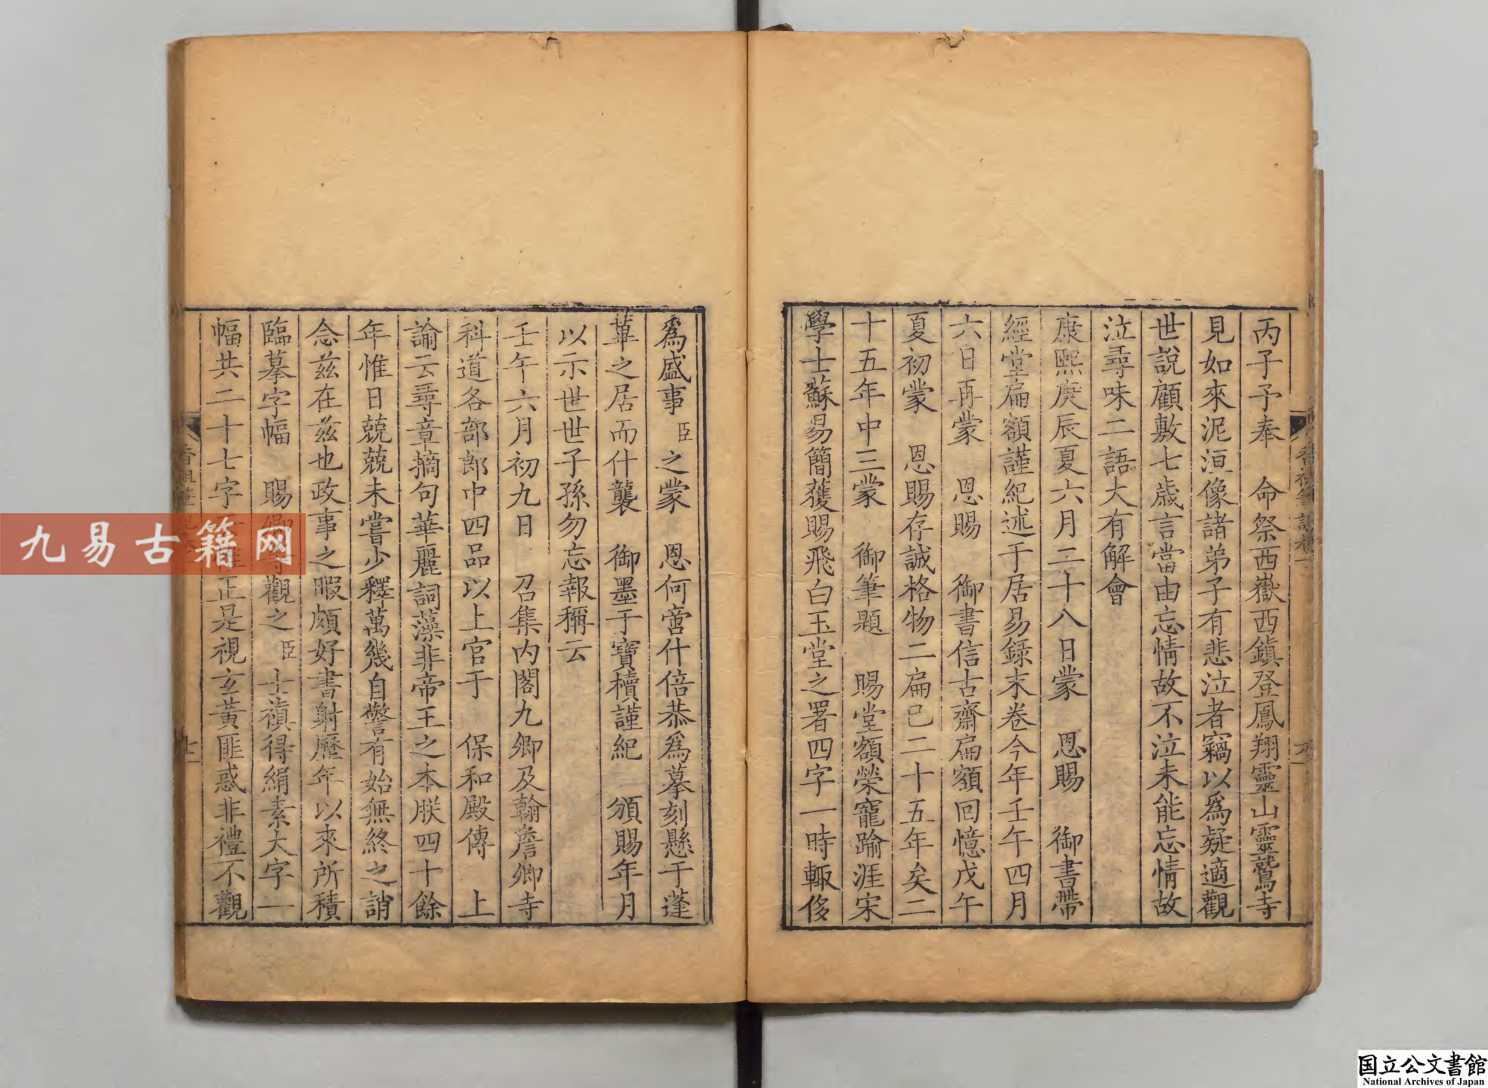 丙子予奉　命祭西嶽西鎮登鳳翔靈山靈鷲寺
見如來泥洹像諸弟子有悲泣者竊以爲疑適觀
世說顧敷七歲言當由忘情故不泣未能忘情故
泣尋味二語大有解會
康熙庚辰夏六月二十八日蒙　恩賜　御書帶
經堂扁額謹紀述于居易録末卷今年壬午四月
六日再蒙　恩賜　御書信古齋扁額回憶戊午
夏初蒙　恩賜存誠格物二扁已二十五年矣二
十五年中三蒙　御筆題　賜堂額榮寵踰涯宋
學士蘇易簡獲賜飛白玉堂之署四字一時輙侈
爲盛事臣之蒙　恩何啻什倍恭爲摹刻懸于蓬
蓽之居而什襲　御墨于寶櫝謹紀　頒賜年月
以示世世子孫勿忘報稱云
壬午六月初九日　召集內閣九卿及翰詹卿寺
科道各部郎中四品以上官于　保和殿傳　上
諭云尋章摘句華麗詞藻非帝王之本朕四十餘
年惟日兢兢未嘗少釋萬幾自警有始無終之誚
念兹在兹也政事之暇頗好書射歷年以來所積
臨摹字幅　賜觀之臣士禛得絹素大字一
幅共二十七字正是視玄黃匪惑非禮不觀
九易古籍网
国立公文書館
National Archives of Japan